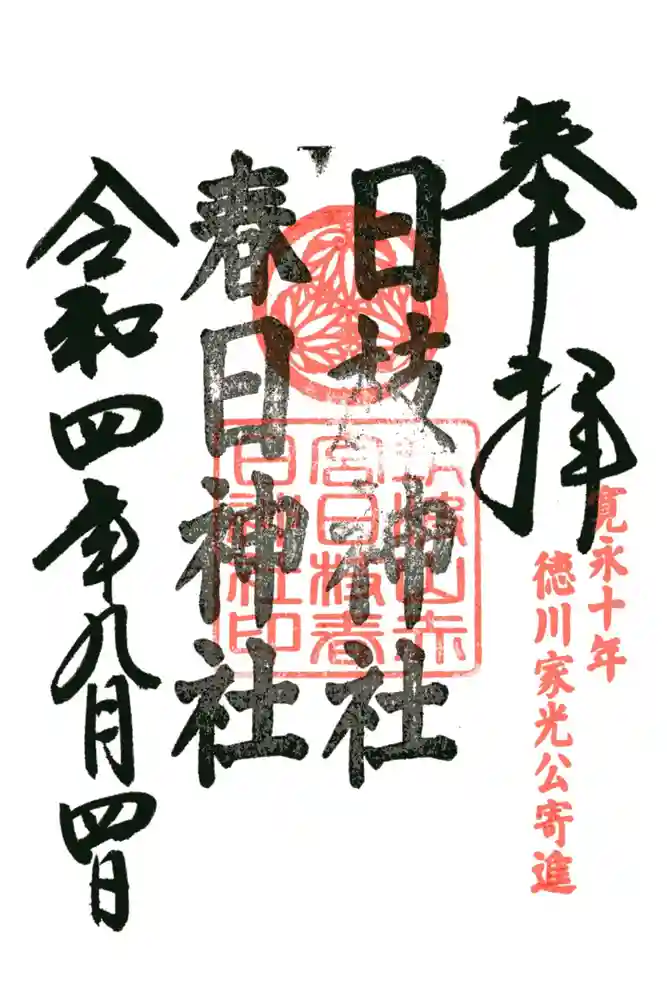 奉拝
寛永十年
徳川家光公寄進
日枝神社
春日神社
山赤
宮日枝春
日神社印
令和四年九月四日